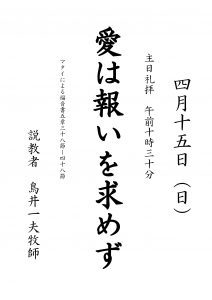 四月十五日（日）
主日礼拝　午前十時三十分
愛は報いを求めず
マタイによる福音書五章三十八節－四十八節
説教者　鳥井一夫牧師